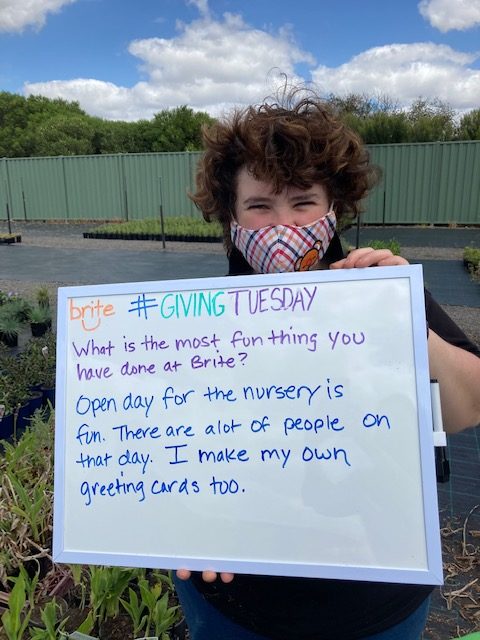 brite #GIVINGTUESDAY
What is the most fun thing you
have done at Brite?
Open day for the nursery is
fun. There are alot of people on
that day. I make my own
greeting cards too.